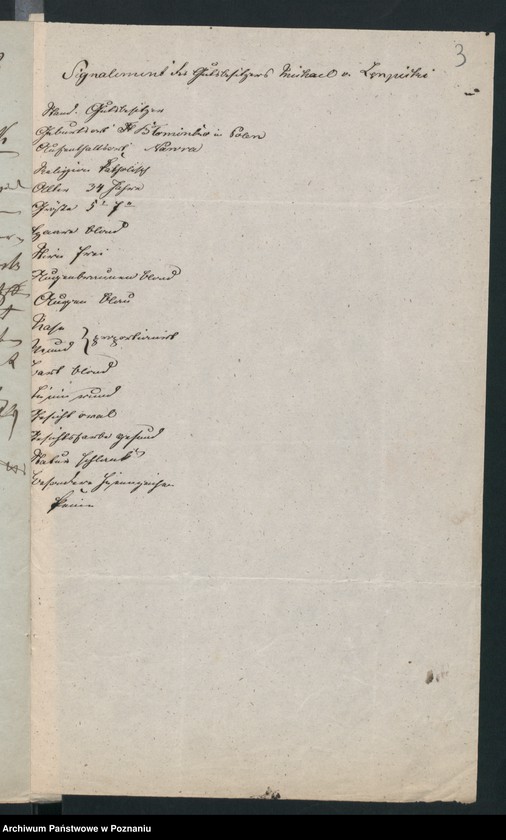 3
Signalement des Gutsbesitzers Michael v.
Stand. Gutsbesitzer
Geburtsort in Polen
Aufenthaltsort Nawra
Religion katholisch
Alter 34 Jahre
Größe 5' 7"
Haare blond
Stirn frei
Augenbraunen blond
Augen blau
Nase
Mund } proportionirt
Bart blond
Kinn rund
Gesicht oval
Gesichtsfarbe gesund
Statur schlank
besondere Kennzeichen
keine
Archiwum Państwowe w Poznaniu